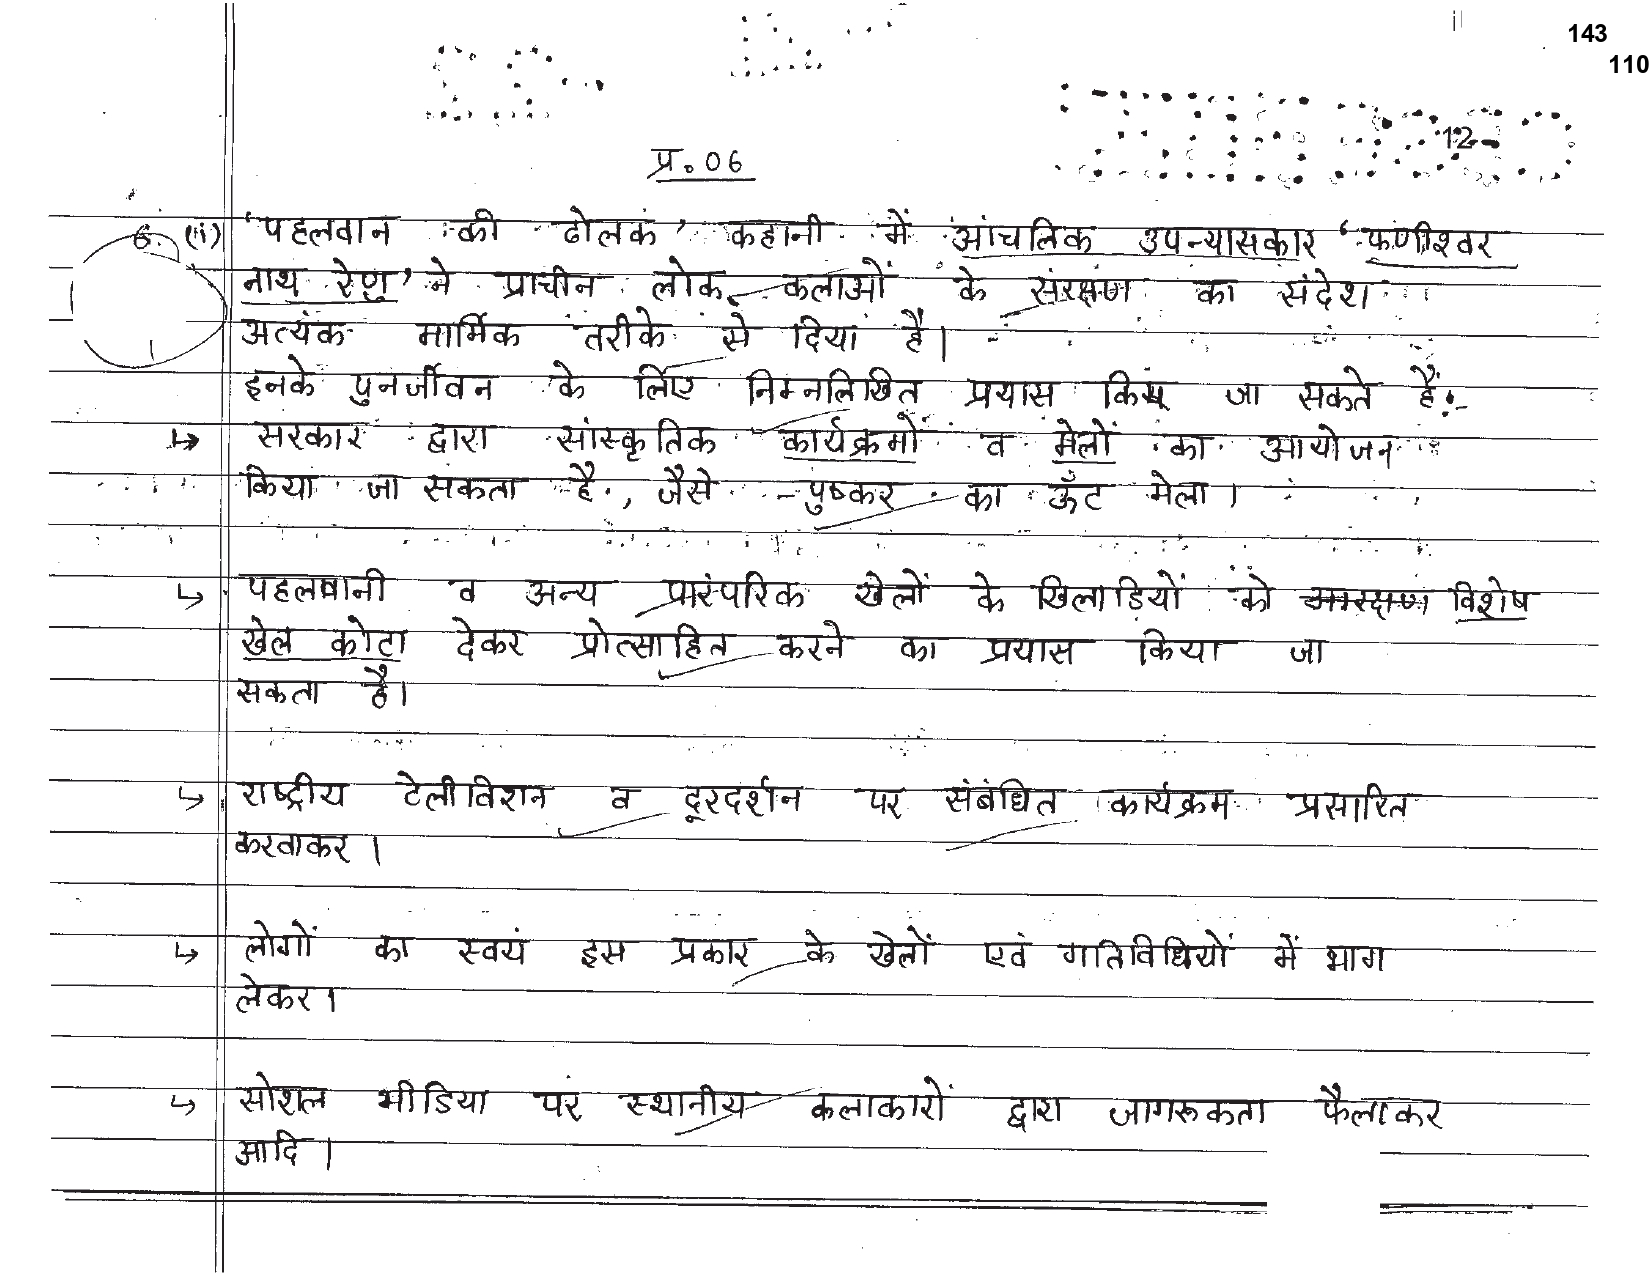 143
110
12
प्र. 06
6. (ii) 'पहलवान की ढोलक' कहानी में आंचलिक उपन्यासकार 'फणीश्वर
नाथ रेणु' ने प्राचीन लोक कलाओं के संरक्षण का संदेश
अत्यंक मार्मिक तरीके से दिया है।
इनके पुनर्जीवन के लिए निम्नलिखित प्रयास किए जा सकते हैं:-
↳ सरकार द्वारा सांस्कृतिक कार्यक्रमों व मेलों का आयोजन
किया जा सकता है, जैसे - पुष्कर का ऊँट मेला।
↳ पहलवानी व अन्य पारंपरिक खेलों के खिलाड़ियों को आरक्षण विशेष
खेल कोटा देकर प्रोत्साहित करने का प्रयास किया जा
सकता है।
↳ राष्ट्रीय टेलीविशन व दूरदर्शन पर संबंधित कार्यक्रम प्रसारित
करवाकर।
↳ लोगों का स्वयं इस प्रकार के खेलों एवं गतिविधियों में भाग
लेकर।
↳ सोशल मीडिया पर स्थानीय कलाकारों द्वारा जागरूकता फैलाकर
आदि।